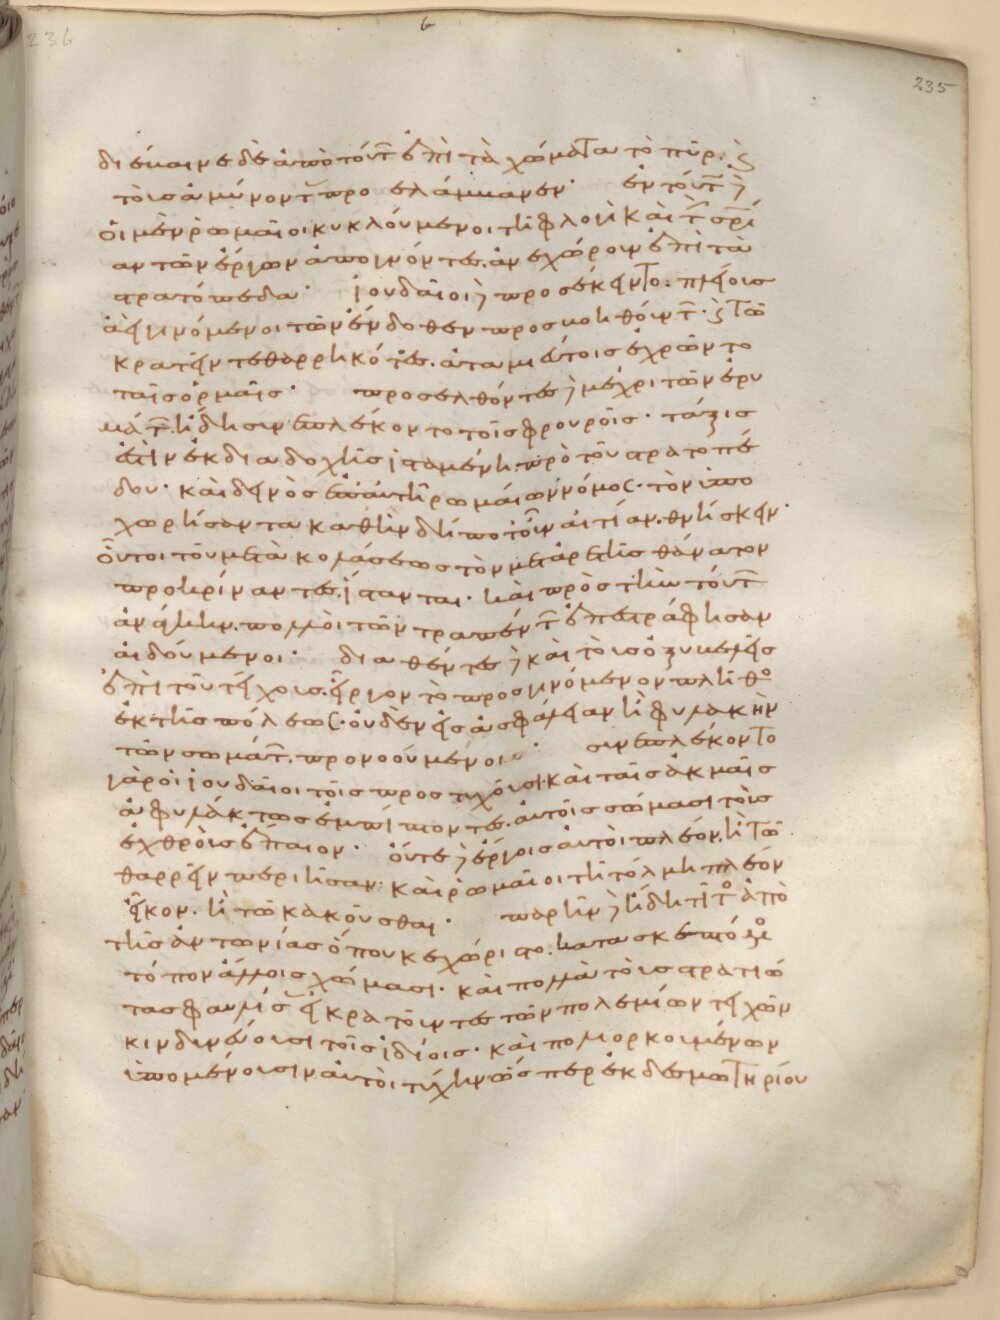 διέβαινε δὲ ἀπὸ τούτ(ων) ἐπὶ τὰ χώματα τὸ πῦρ· (καὶ)
τοὺς ἀμύνοντ(ας) προελάμβανεν· ἐν τούτ(ῳ) δ(ὲ)
οἱ μὲν ῥωμαῖοι κυκλούμενοι τῆ φλογὶ καὶ τ(ὴν) σ(ωτη)ρί
αν τῶν ἔργων ἀπογνόντες. ἀνεχώρουν ἐπὶ τὰ
στρατόπεδα· ἰουδαῖοι δ(ὲ) προσέκειντο. πλείους
ἀεὶ γινόμενοι τῶν ἔνδοθεν προσβοηθούντ(ων)· (καὶ) τῶ
κρατεῖν τεθαρρηκότες. ἀταμιεύτοις ἐχρῶντο
ταῖς ὁρμαῖς· προσελθόντες δ(ὲ) μέχρι τῶν ἐρυ
μάτ(ων). ἤδη συνεπλέκοντο τοῖς φρουροῖς· τάξις
ἐστὶν ἐκ διαδοχῆς ἱσταμένη. πρὸ τοῦ στρατοπέ
δου· καὶ δεινὸς ἐπ' αὐτῆ ῥωμαίων νόμος· τὸν ὑπο
χωρήσαντα καθ' ἣν δήποτ' οὖν αἰτίαν. θνήσκειν·
οὗτοι τοῦ μετὰ κολάσεως τὸν μετ' ἀρετῆς θάνατον
προκρίναντες. ἵστανται· καὶ πρὸς τὴν τούτ(ων)
ἀνάγκην. πολλοὶ τῶν τραπέντ(ων) ἐπεστράφησαν
αἰδούμενοι· διαθέντες δ(ὲ) καὶ τοὺς ὀξυβελεῖς
ἐπὶ τοῦ τείχους. εἶργον τὸ προσγινόμενον πλῆθο(ς)
ἐκ τῆς πόλεως· οὐδὲν εἰς ἀσφάλειαν ἢ φυλακὴν
τῶν σωμάτ(ων). προνοούμενοι· συνεπλέκοντο
γὰρ οἱ ἰουδαῖοι τοῖς προστυχοῦσι· καὶ ταῖς ἀκμαῖς
ἀφυλάκτως ἐμπίπτοντες. αὐτοῖς σώμασι τοὺς
ἐχθροὺς ἔπαιον· οὔτε δ(ὲ) ἔργοις αὐτοὶ πλέον, ἢ τῶ
θαρρεῖν περιῆσαν· καὶ ῥωμαῖοι τῆ τόλμη πλέον
εἶκον. ἢ τῶ κακοῦσθαι· παρῆν δ(ὲ) ἤδη τίτο(ς) ἀπὸ
τῆς ἀντωνίας ὅπου κεχώριστο. κατασκεπτόμενο(ς)
τόπον ἄλλοις χώμασι· καὶ πολλὰ τοὺς στρατιώ
τας φαυλίσ(ας) εἰ κρατοῦντες τῶν πολεμίων τειχῶν
κινδυνεύουσι τοῖς ἰδίοις· καὶ πολιορκουμένων
ὑπομένουσιν αὐτοὶ τύχην ὥσπερ ἐκ δεσμωτηρίου
235
236